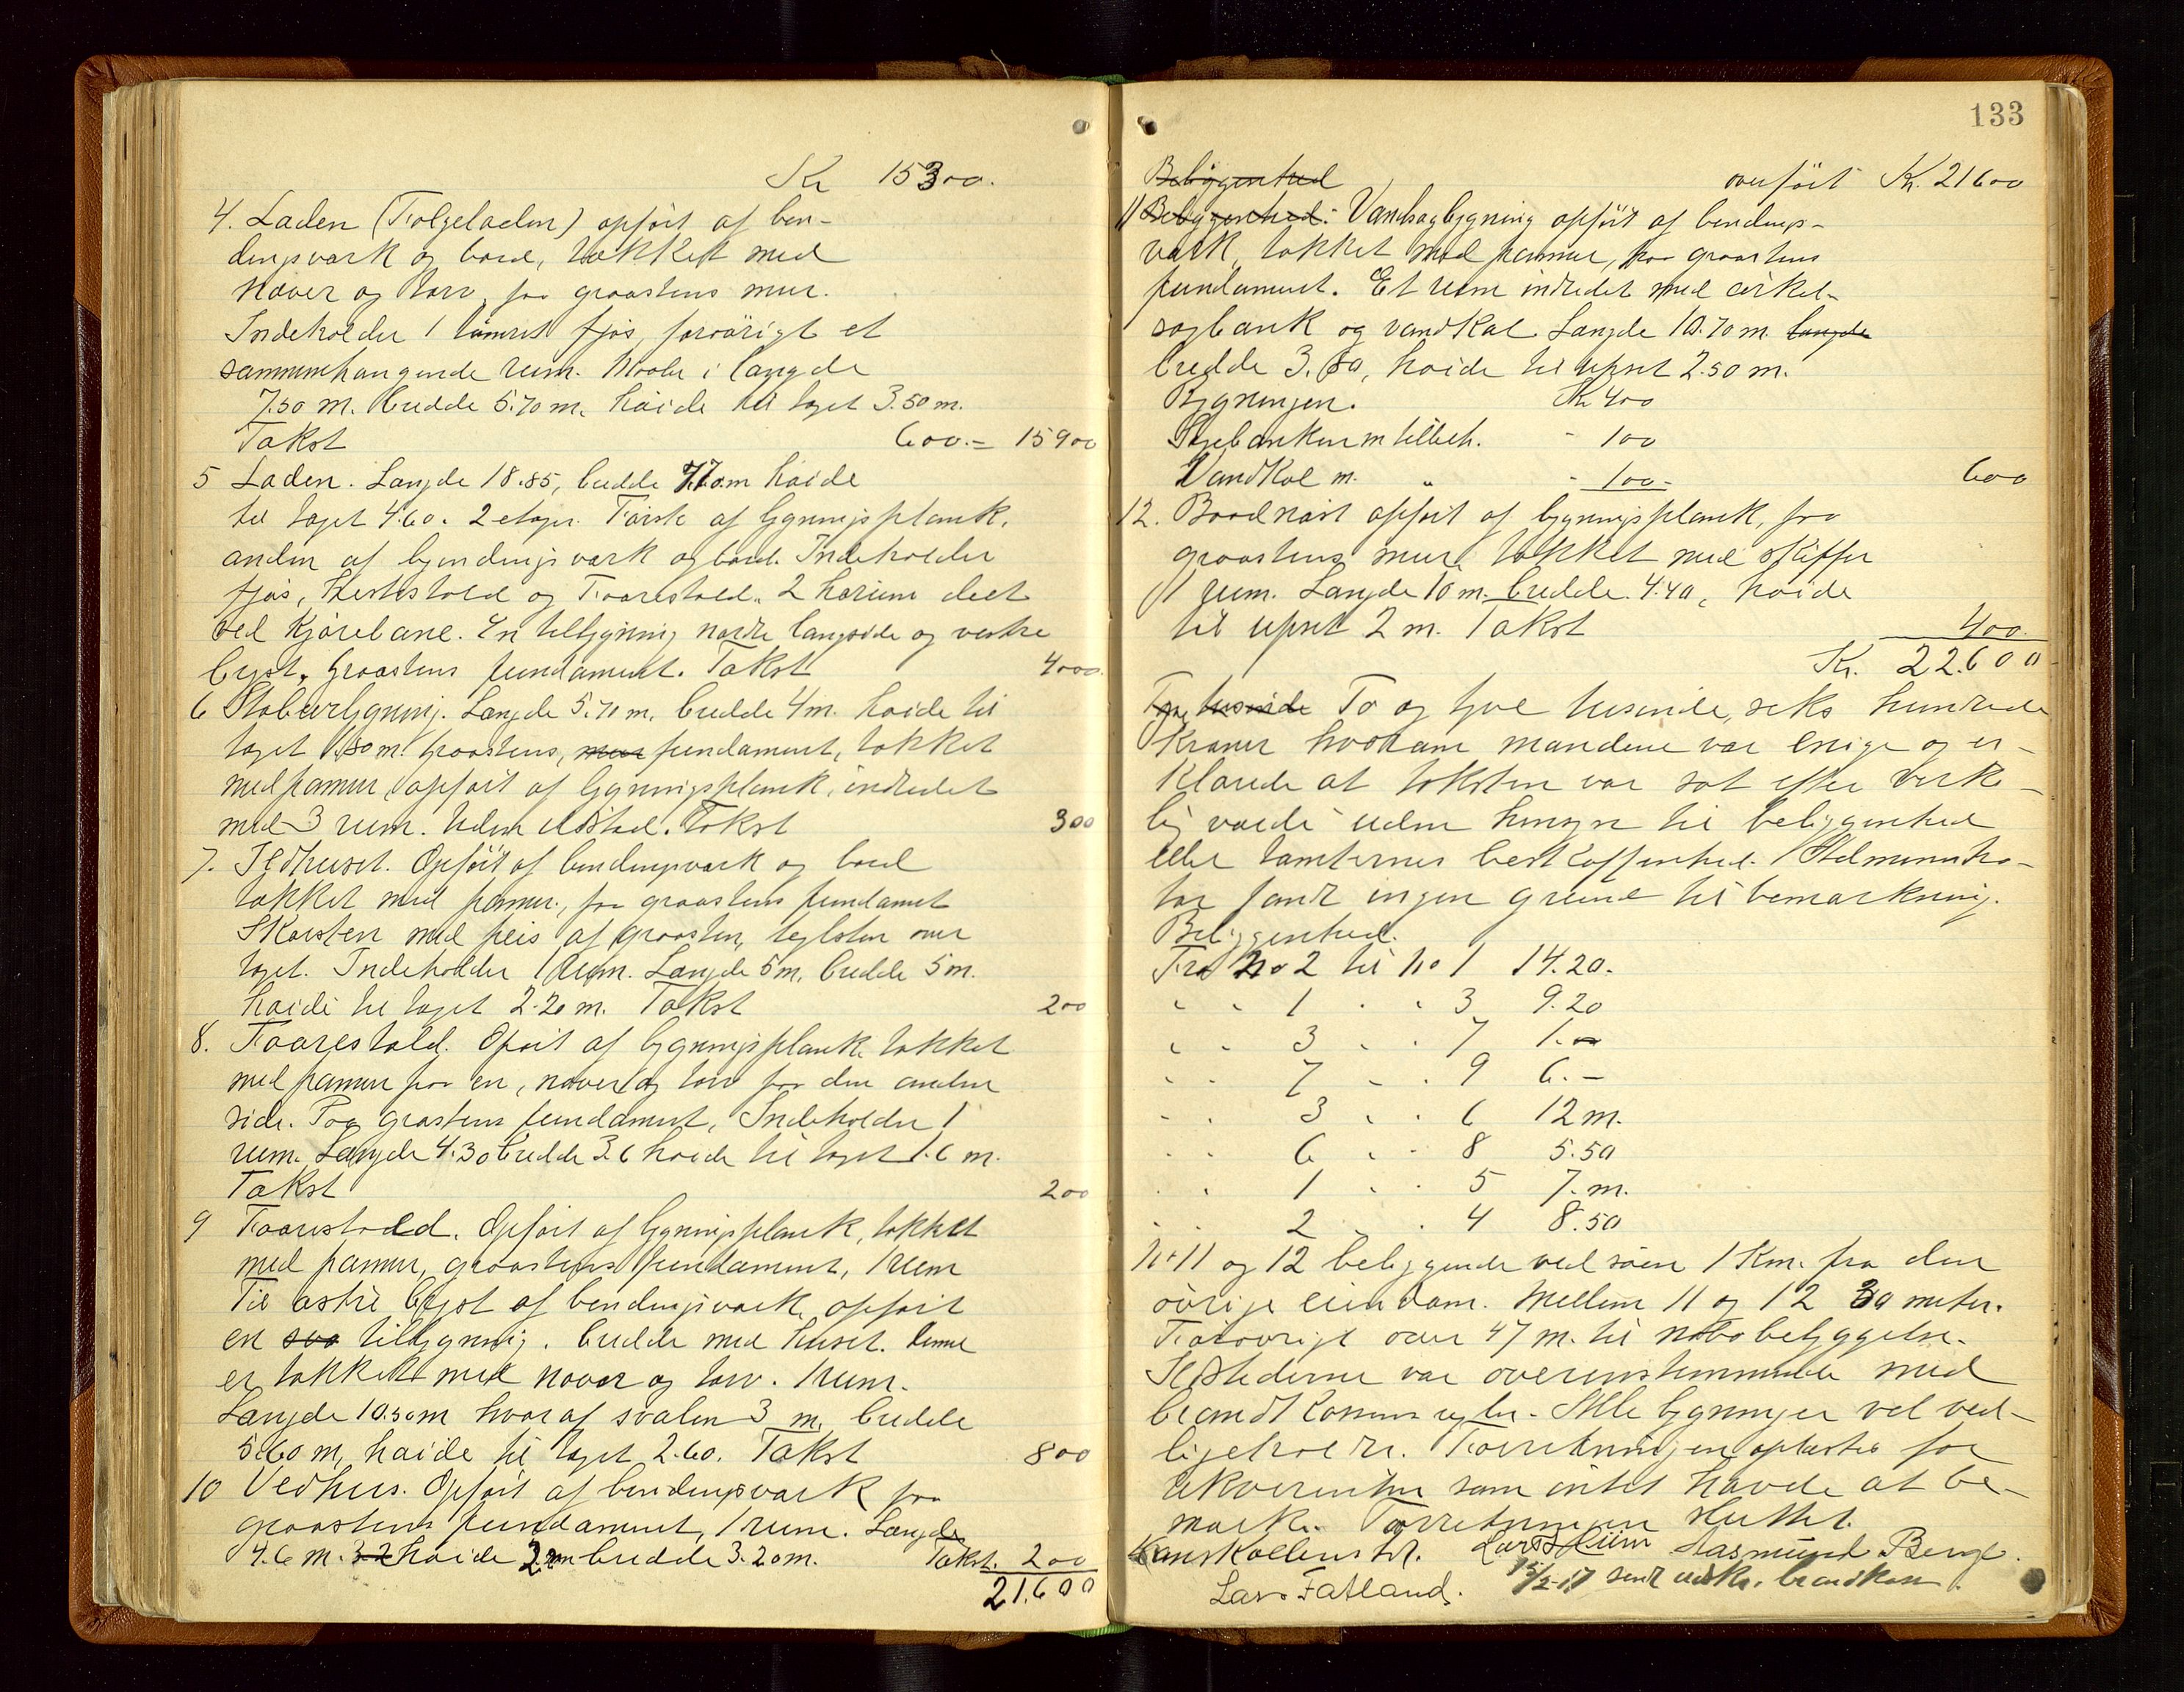 Kr 15300.
4. Laden (Følgeladen) opført af ben-
dingsverk og bord, tækket med
næver og torv, paa graastens mur.
Indeholder 1 tømret fjøs, forøvrigt et
sammenhængende rum. Maaler i længde
7.50 m. bredde 5.70 m. høide til taget 3.50 m.
Takst 600.– 15900
5 Laden. Længde 18.85, bredde 7.70 m høide
til taget 4.60. 2 etager. Første af bygningsplank,
anden af byndingsværk og bord. Indeholder
fjøs, Hestestald og Faarestald. 2 hørum delt
ved kjørebane. En tilbygning nordre langside og vestre
bygst. Graastens fundament. Takst 4000.
6 Stabursbygning. Længde 5.70 m. bredde 4 m. høide til
taget 1.80 m. Graastens, mur fundament, tækket
med panner, opført af bygningsplank, indredet
med 3 rum. Uden ildsted. Takst 300
7. Ildhuset. Opført af bendingsværk og bord
tækket med panner, paa graastens fundament
Skorsten med peis af graasten, teglsten over
taget. Indeholder 1 rum. Længde 5 m. bredde 5 m.
høide til taget 2.20 m. Takst 200
8. Faarestald. Opført af bygningsplank tækket
med panner paa en, næver og torv paa den anden
side. Paa grastens fundament, Indeholder 1
rum. Længde 4.30 bredde 3.6 høide til taget 1.6 m.
Takst 200
9 Faarestald. Opført af bygningsplank, tækket
med panner, graastens fundament, 1 rum
Til østre bygst af bendingsværk opført
en sva tilbygning. bredde med huset. denne
er tækket med næver og torv. 1 rum.
Længde 10.50 m hvoraf svalen 3 m. bredde
5.60 m, høide til taget 2.60. Takst 800
10 Vedhus. Opført af bendingsværk paa
graastens fundament, 1 rum. Længde
4.6 m. 3.2 høide 2. m bredde 3.20 m. Takst. 200
21.600
133
Beliggenhed overført Kr. 21600
11 Beliggenhed: Vandsagbygning opført af bendings-
værk, tækket med panner, paa graastens
fundament. Et rum indredet med cirkel-
sagbænk og vandkal. Længde 10.70 m. længde
bredde 3.80, høide til upset 2.50 m.
Bygningen. Kr 400
Sagbænken m tilbeh. - 100
Vandkal m. " - 100 - 600
12. Baadnøst opført af bygningsplank, paa
graastens mur. tækket med skiffer
1 rum. Længde 10 m. bredde 4.40, høide
til upset 2 m. Takst 400.
Kr. 22.600
Tyve tusinde To og tyve tusinde, seks hundrede
Kroner hvorom mændene var enige og er-
klærede at taksten var sat efter virke-
lig værdi uden hensyn til beliggenhed
eller tomternes beskaffenhed. Administra-
tor fandt ingen grund til bemærkning.
Beliggenhed.
Fra No 2 til No 1 14.20.
" " 1 " " 3 9.20
" " 3 " " 7 1.00
" " 7 " " 9 6.–
" " 3 " " 6 12 m.
" " 6 " " 8 5.50
" " 1 " " 5 7. m.
" " 2 " " 4 8.50
No 11 og 12 beliggende ved søen 1 Km. fra den
øvrige eiendom. Mellem 11 og 12 30 meter.
Forøvrigt over 47 m. til nabobebyggelse.
Ildstederne var overensstemmende med
brandkassens regler. Alle bygninger vel ved-
ligeholdt. Forretningen oplæstes for
rekvirenten som intet havde at be-
mærke. Forretningen sluttet.
Lars Hiim Aasmund Berge.
Lars Fatland. 15/2-17 sendt udskr. brandkassen.